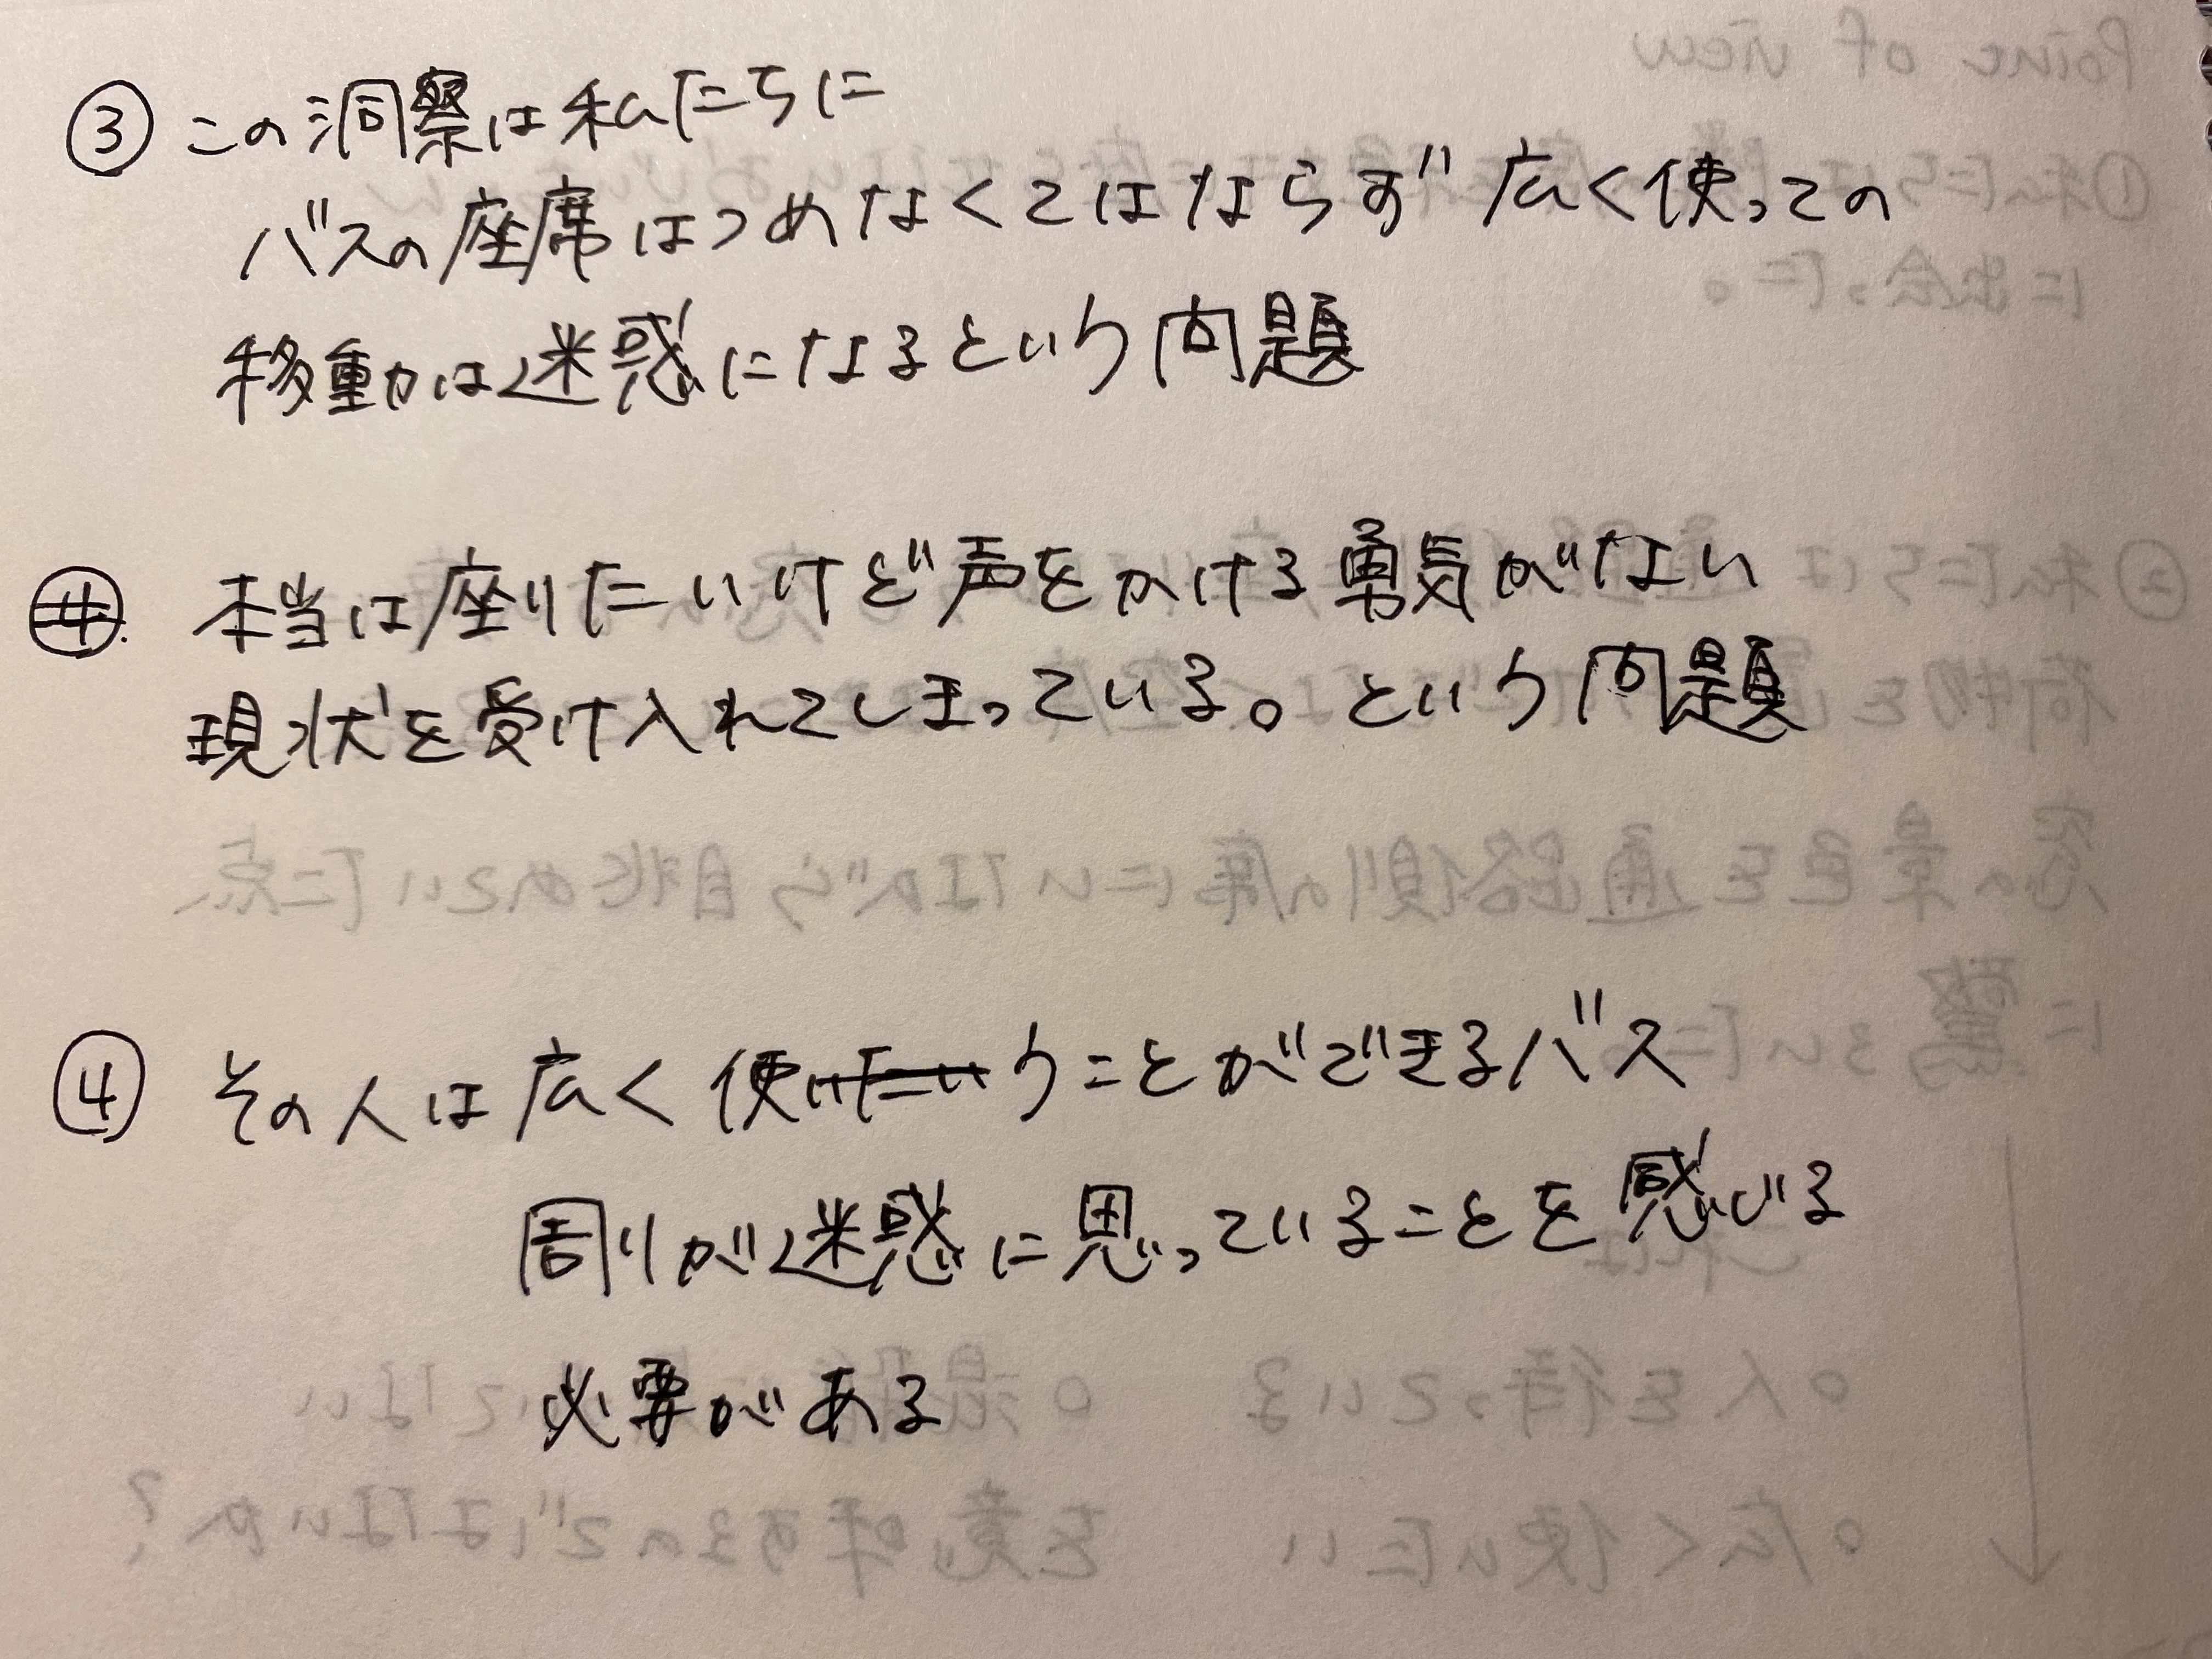 ③ この洞察は私たちに
バスの座席はつめなくてはならず広く使っての
移動は迷惑になるという問題
本当は座りたいけど声をかける勇気がない
現状を受け入れてしまっている。という問題
④ その人は広く使うことができるバス
周りが迷惑に思っていることを感じる
必要がある